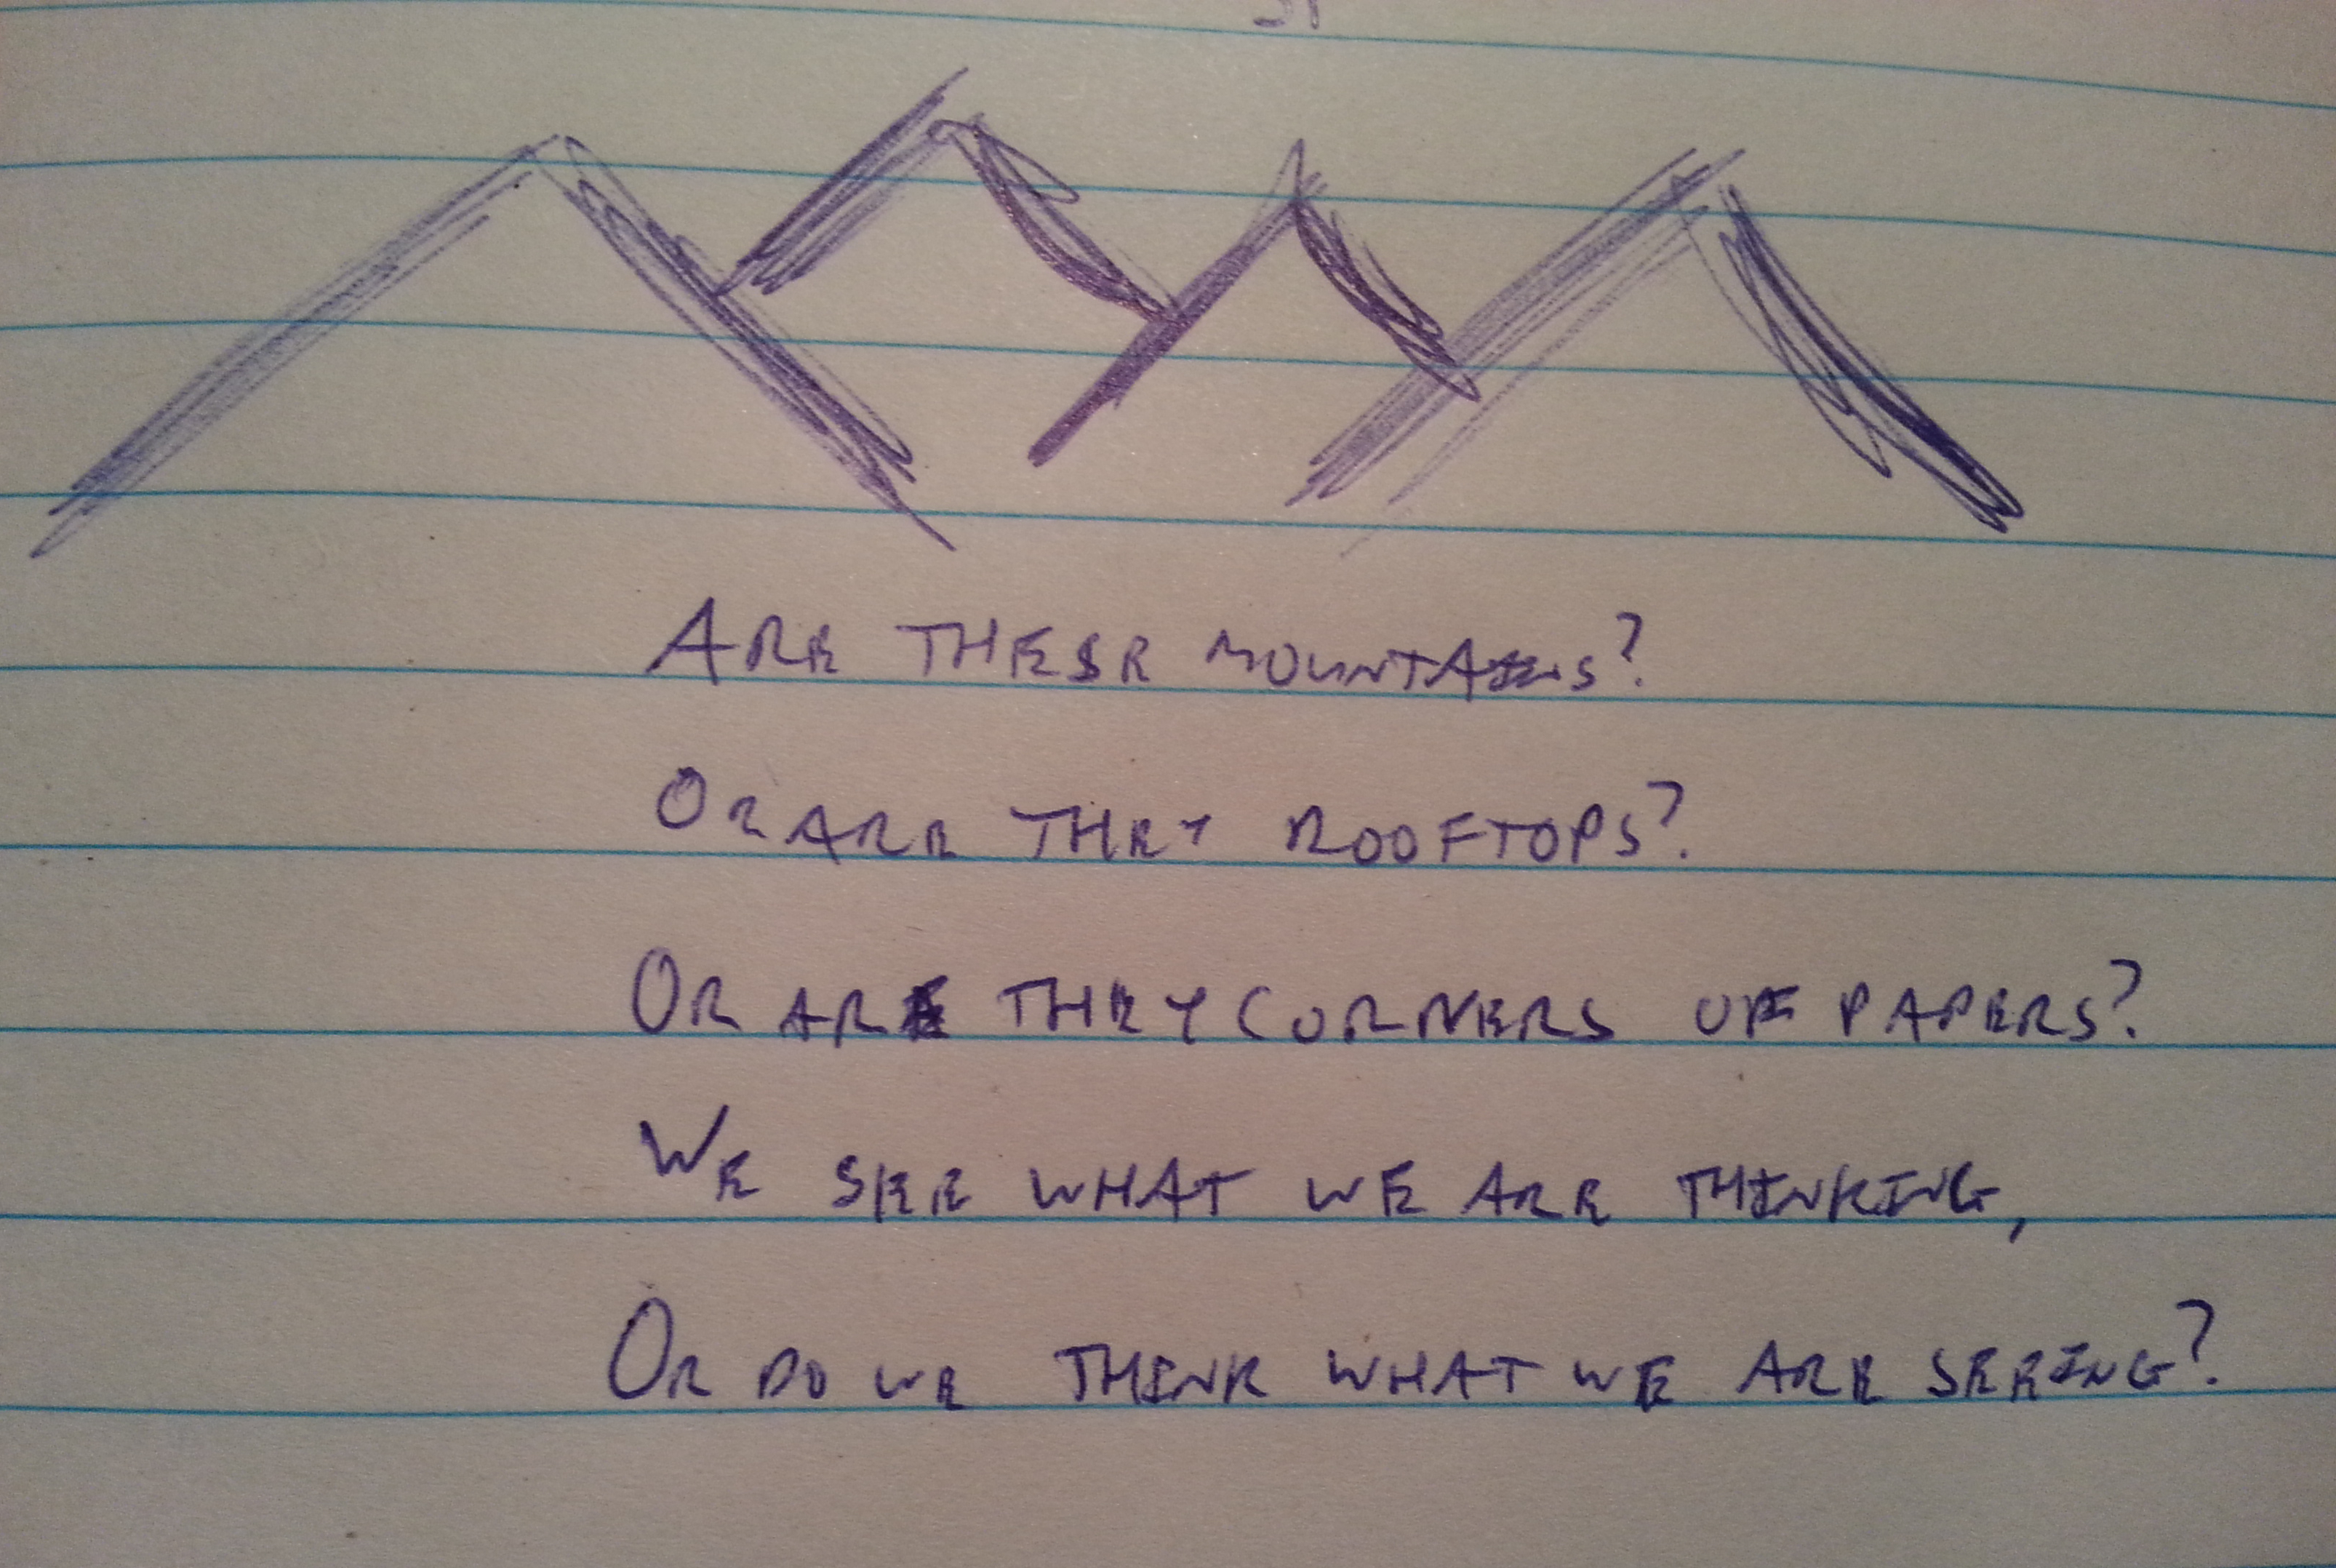 ARE THESE MOUNTAINS?
OR ARE THEY ROOFTOPS?
OR ARE THEY CORNERS OF PAPERS?
WE SEE WHAT WE ARE THINKING,
OR DO WE THINK WHAT WE ARE SEEING?